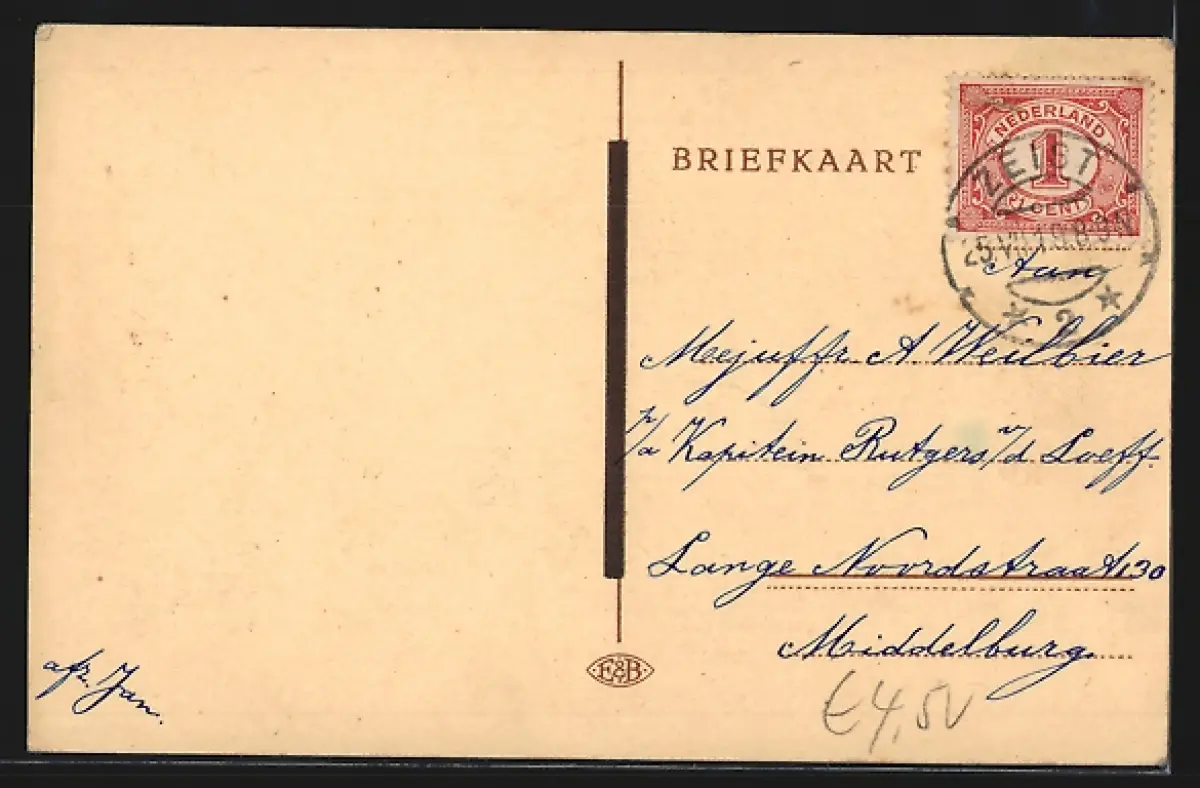 BRIEFKAART
NEDERLAND
1
1 CENT
ZEIST
2
Aan
Mejuffr A Weulbier
p/a Kapitein Rutgers v/d Loeff
Lange Noordstraat 130
Middelburg
afz. Jan.
E&B
€4,50